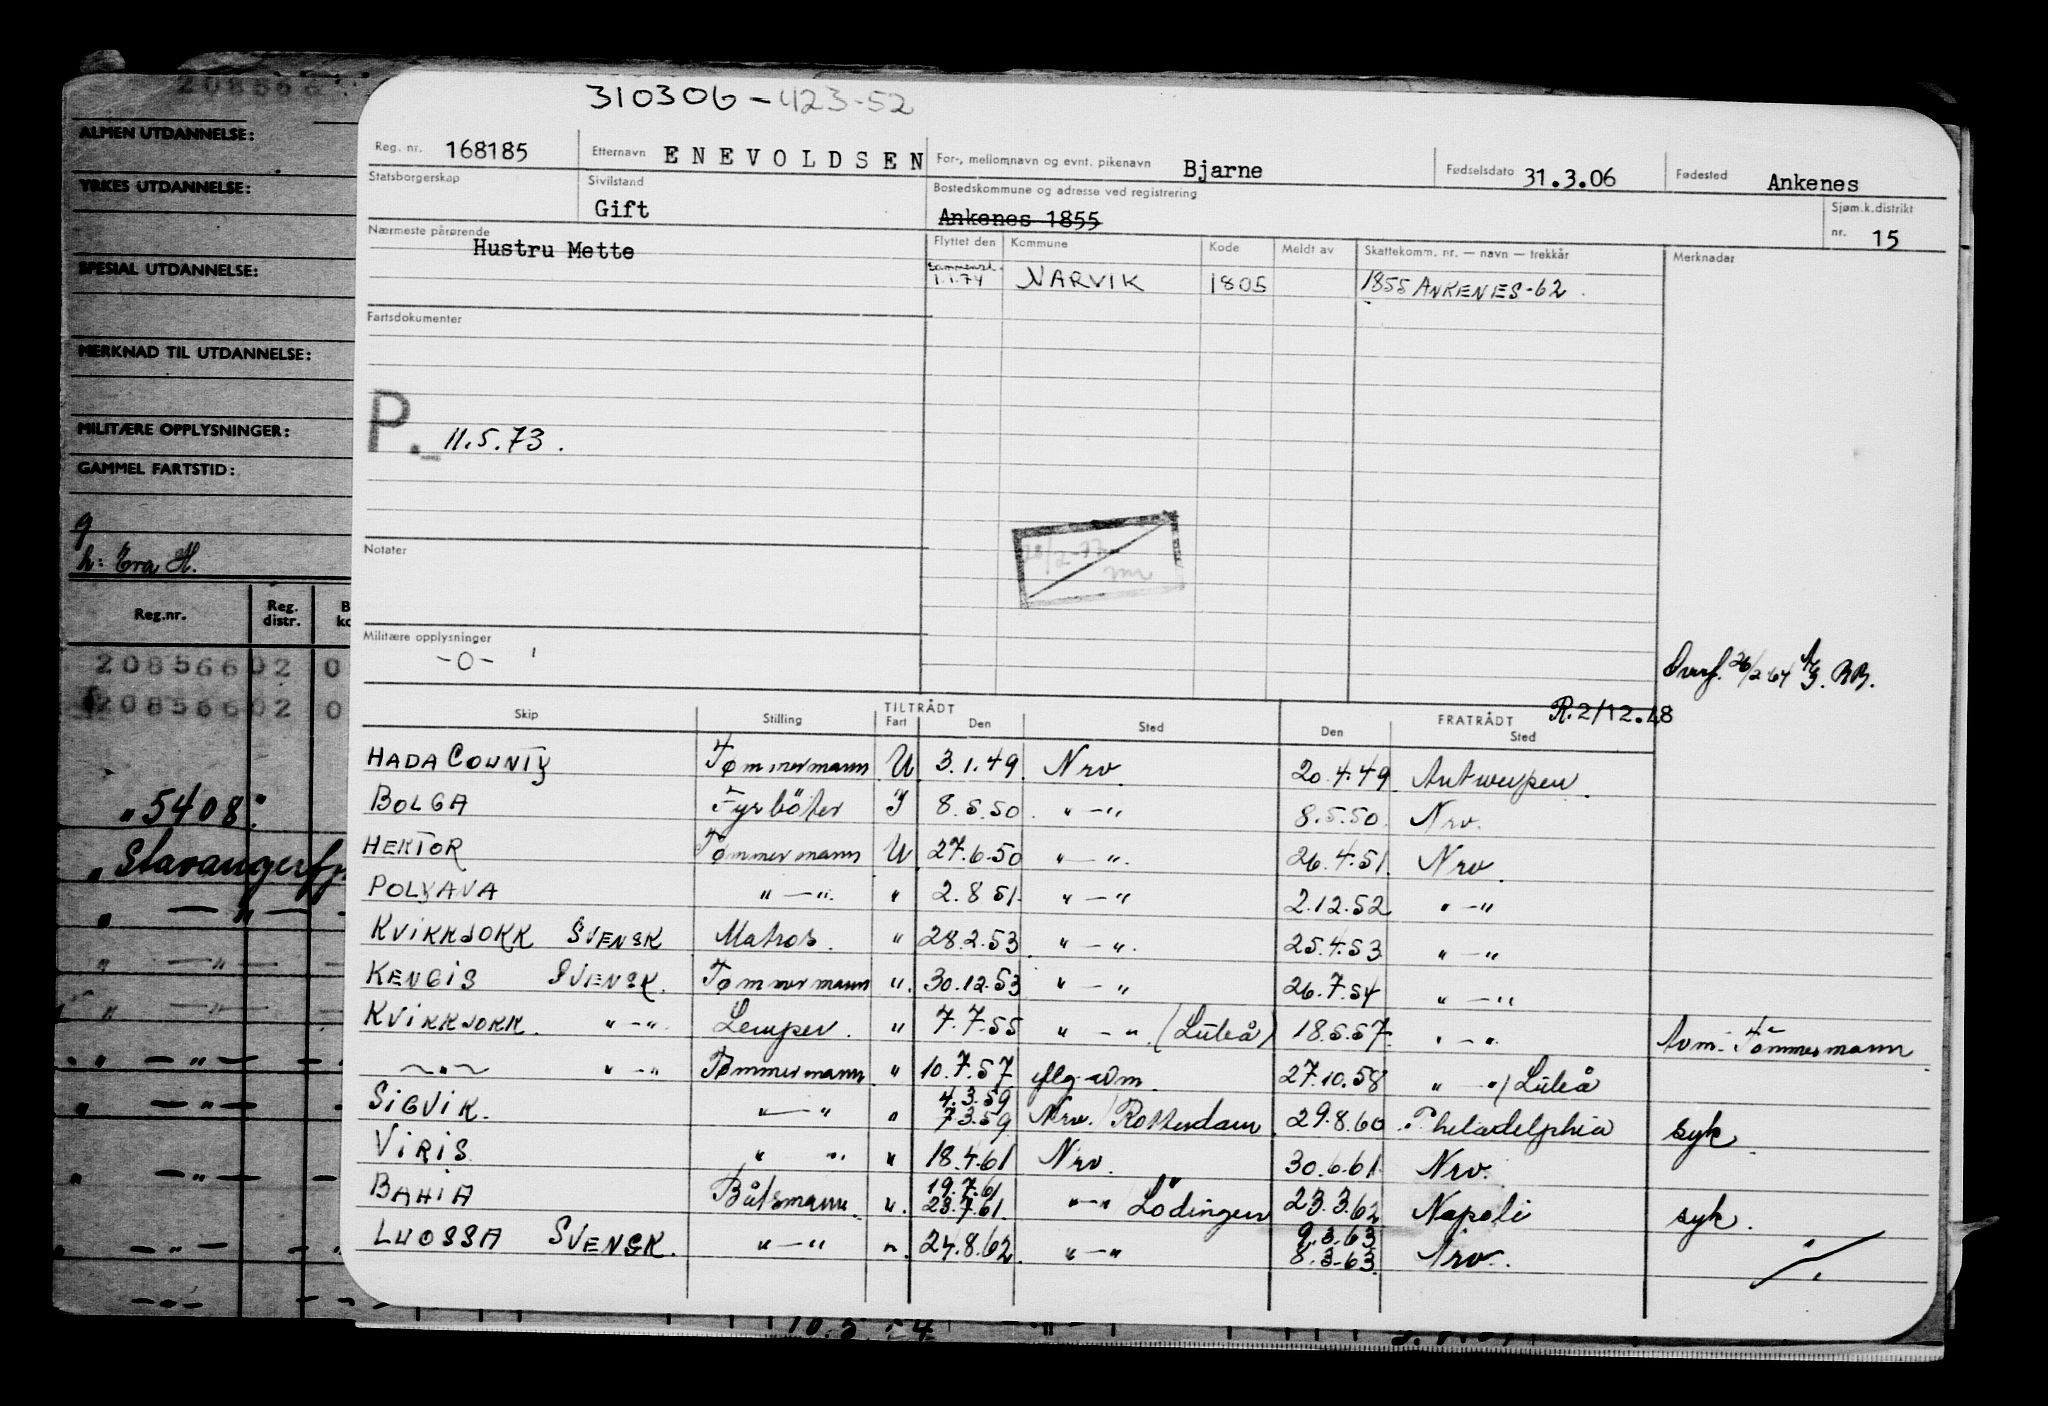 208566
ALMEN UTDANNELSE:
YRKES UTDANNELSE:
SPESIAL UTDANNELSE:
MERKNAD TIL UTDANNELSE:
MILITÆRE OPPLYSNINGER:
GAMMEL FARTSTID:
g
h: Eva H.
Reg.nr. Reg. distr.
20856602 0
20856602 0
"5408"
" Stavangerfj
310306-423-52
Reg. nr. 168185 Etternavn ENEVOLDSEN For-, mellomnavn og evnt. pikenavn Bjarne Fødselsdato 31.3.06 Fødested Ankenes
Statsborgerskap Sivilstand Gift Bostedskommune og adresse ved registrering Ankenes 1855 Sjøm.k.distrikt nr. 15
Nærmeste pårørende Hustru Mette
Flyttet den Kommune Kode Meldt av Skattekomm. nr. — navn — trekkår Merknader
1.1.74 NARVIK 1805 1855 ANKENES-62
Fartsdokumenter
P. 11.5.73.
Notater
Militære opplysninger
-0-
Overf. 26/2 64
R.2/12.48
TILTRÅDT FRATRÅDT
Skip Stilling Fart Den Sted Den Sted
HADA COUNTY Tømmermann U 3.1.49 Nrv. 20.4.49 Antwerpen.
BOLGA Fyrböter I 8.5.50 " — " 8.5.50 Nrv.
HEKTOR Tømmermann U 27.6.50 " — " 26.4.51 Nrv.
POLYANA " — " " 2.8.51 " — " 2.12.52 " — "
KVIKKJOKK SVENSK Matros. " 28.2.53 " — " 25.4.53 " — "
KENGIS SVENSK. Tømmermann " 30.12.53 " — " 26.7.54 " — "
KVIKKJOKK. " — " Lemper. " 7.7.55 " — " (Luleå) 18.5.57 " — " Avm. Tömmermann
— " — " — " Tømmermann " 10.7.57 avm. 27.10.58 " — " / Luleå
SIGVIK. " — " " 4.3.59 7.3.59 Nrv. / Rotterdam 29.8.60 Philadelphia syk.
VIRIS " " " 18.4.61 Nrv. 30.6.61 Nrv.
BAHIA Båtsmann. " 19.7.61 23.7.61 " — " Lödingen 23.3.62 Napoli syk.
LUOSSA SVENSK. " — " " 24.8.62 " — " 9.3.63 8.3.63 Nrv.